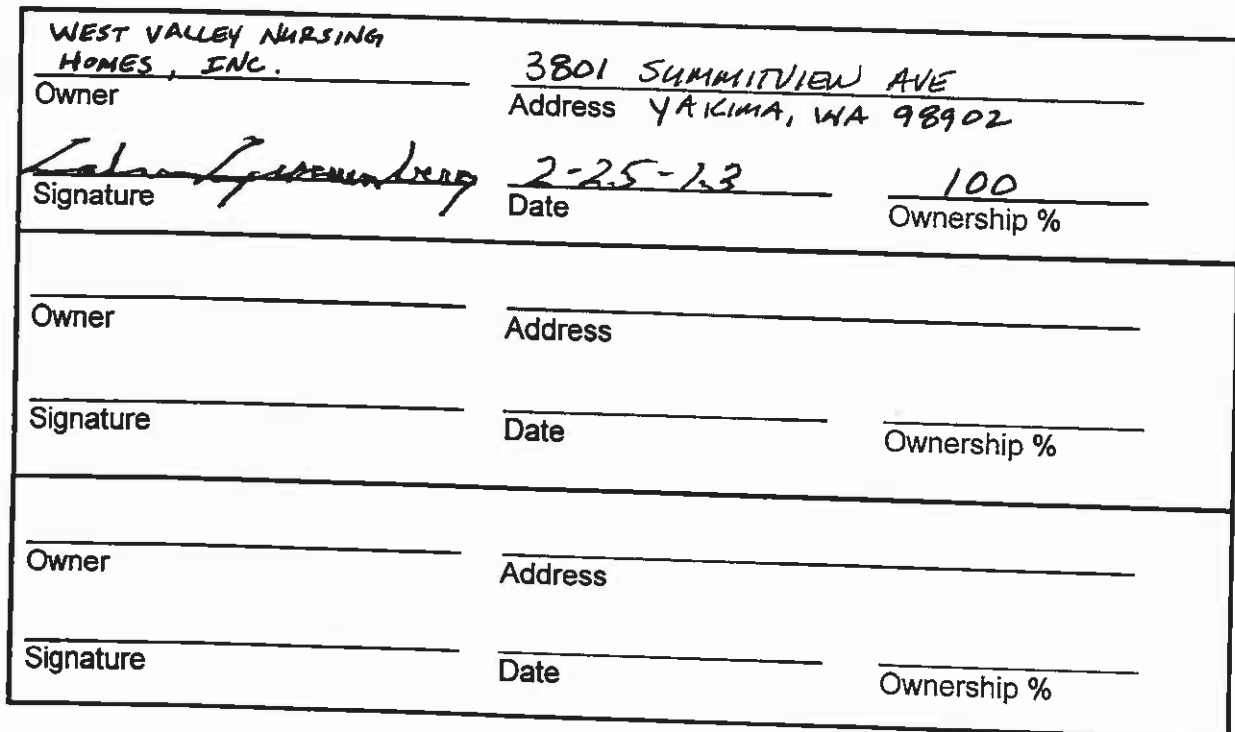 WEST VALLEY NURSING
HOMES, INC.
3801 SUMMITVIEW AVE
Owner
Address YAKIMA, WA 98902
2-25-13
100
Signature
Date
Ownership %
Owner
Address
Signature
Date
Ownership %
Owner
Address
Signature
Date
Ownership %